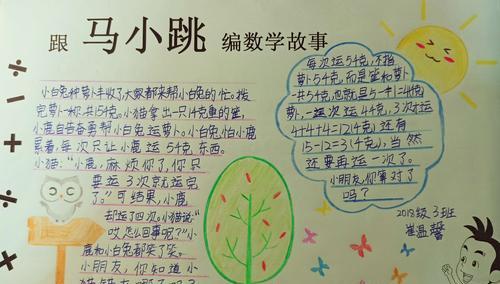 跟 马小跳 编数学故事
小白兔种萝卜丰收了大家都来帮小白兔的忙。拨
完萝卜一称共15千克。小猫拿出一只1千克重的筐,
小鹿自告奋勇帮小白兔运萝卜。小白兔怕小鹿
累着,每次只让小鹿运5千克东西。
小猫:“小鹿,麻烦你了,你只
要运3次就运完
了。”可结果,小鹿
却运了四次。小猫说:“
哎怎么回事呢?”小
鹿和小白兔都笑了笑。
小朋友,你知道小
每次运5千克,不指
萝卜5千克,而是筐和萝卜
一共5千克,也就是5-1=4(千克)
萝卜,一次运4千克,3次才运
4+4+4=12(千克)还有
15-12=3(千克),当然
还要再运一次了。
小朋友,你算对了
吗?
2018级3班
崔温馨